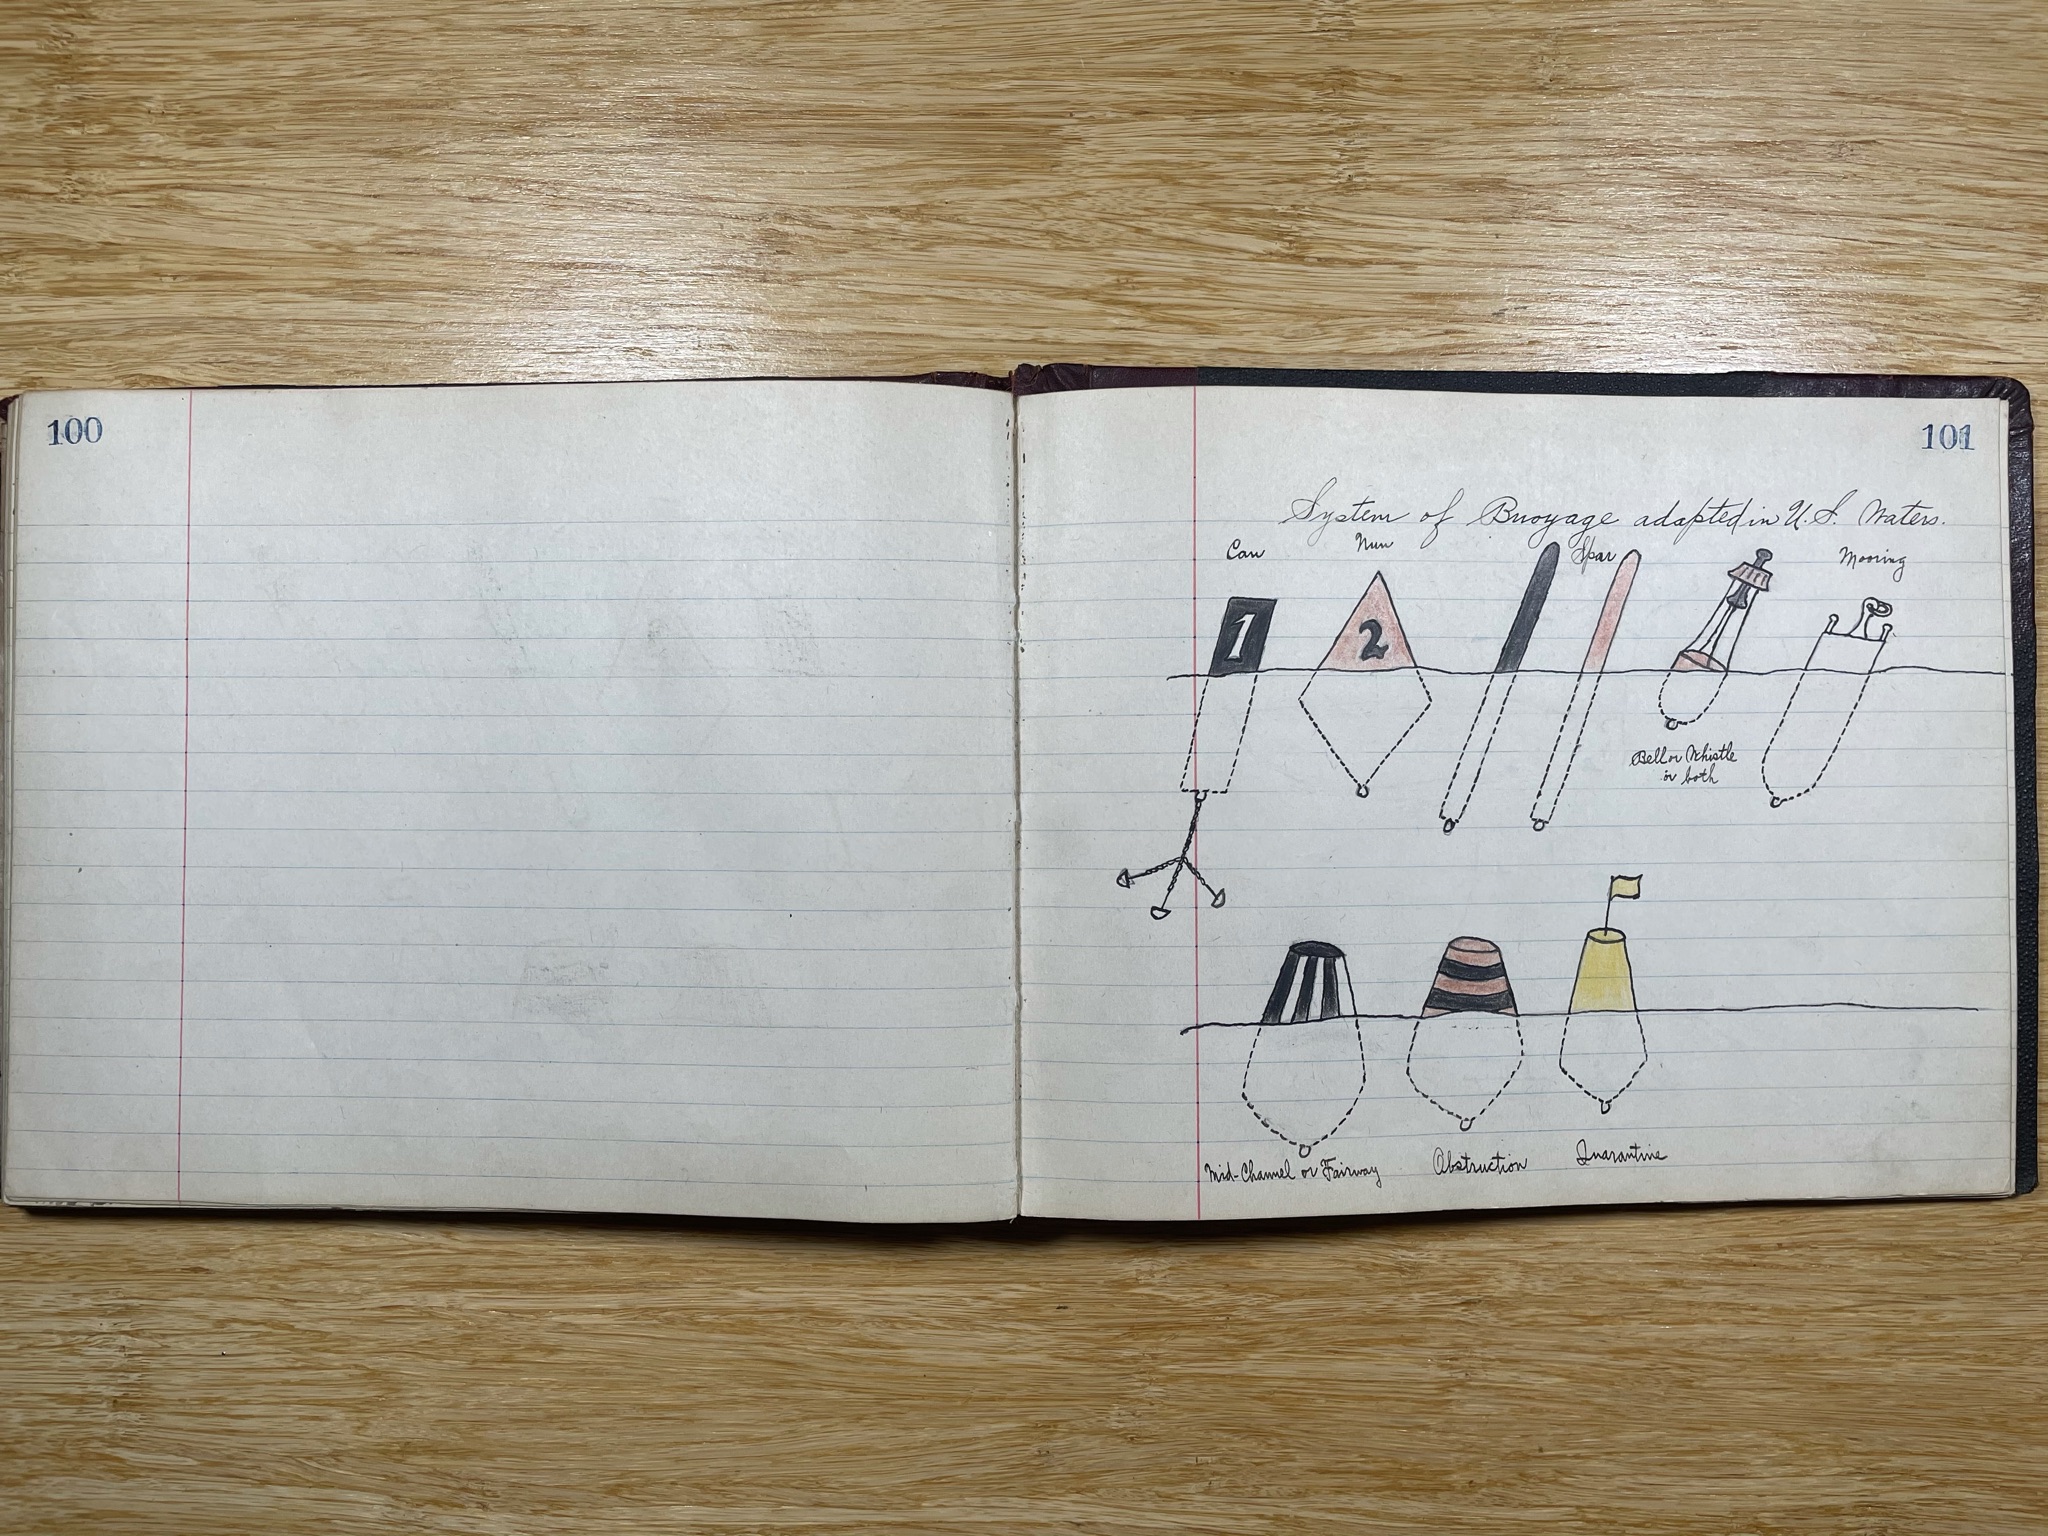 100
101
System of Buoyage adapted in U.S. Waters.
Can
Nun
Spar
Mooring
1
2
Bell or Whistle
or both
Mid-Channel or Fairway
Obstruction
Quarantine